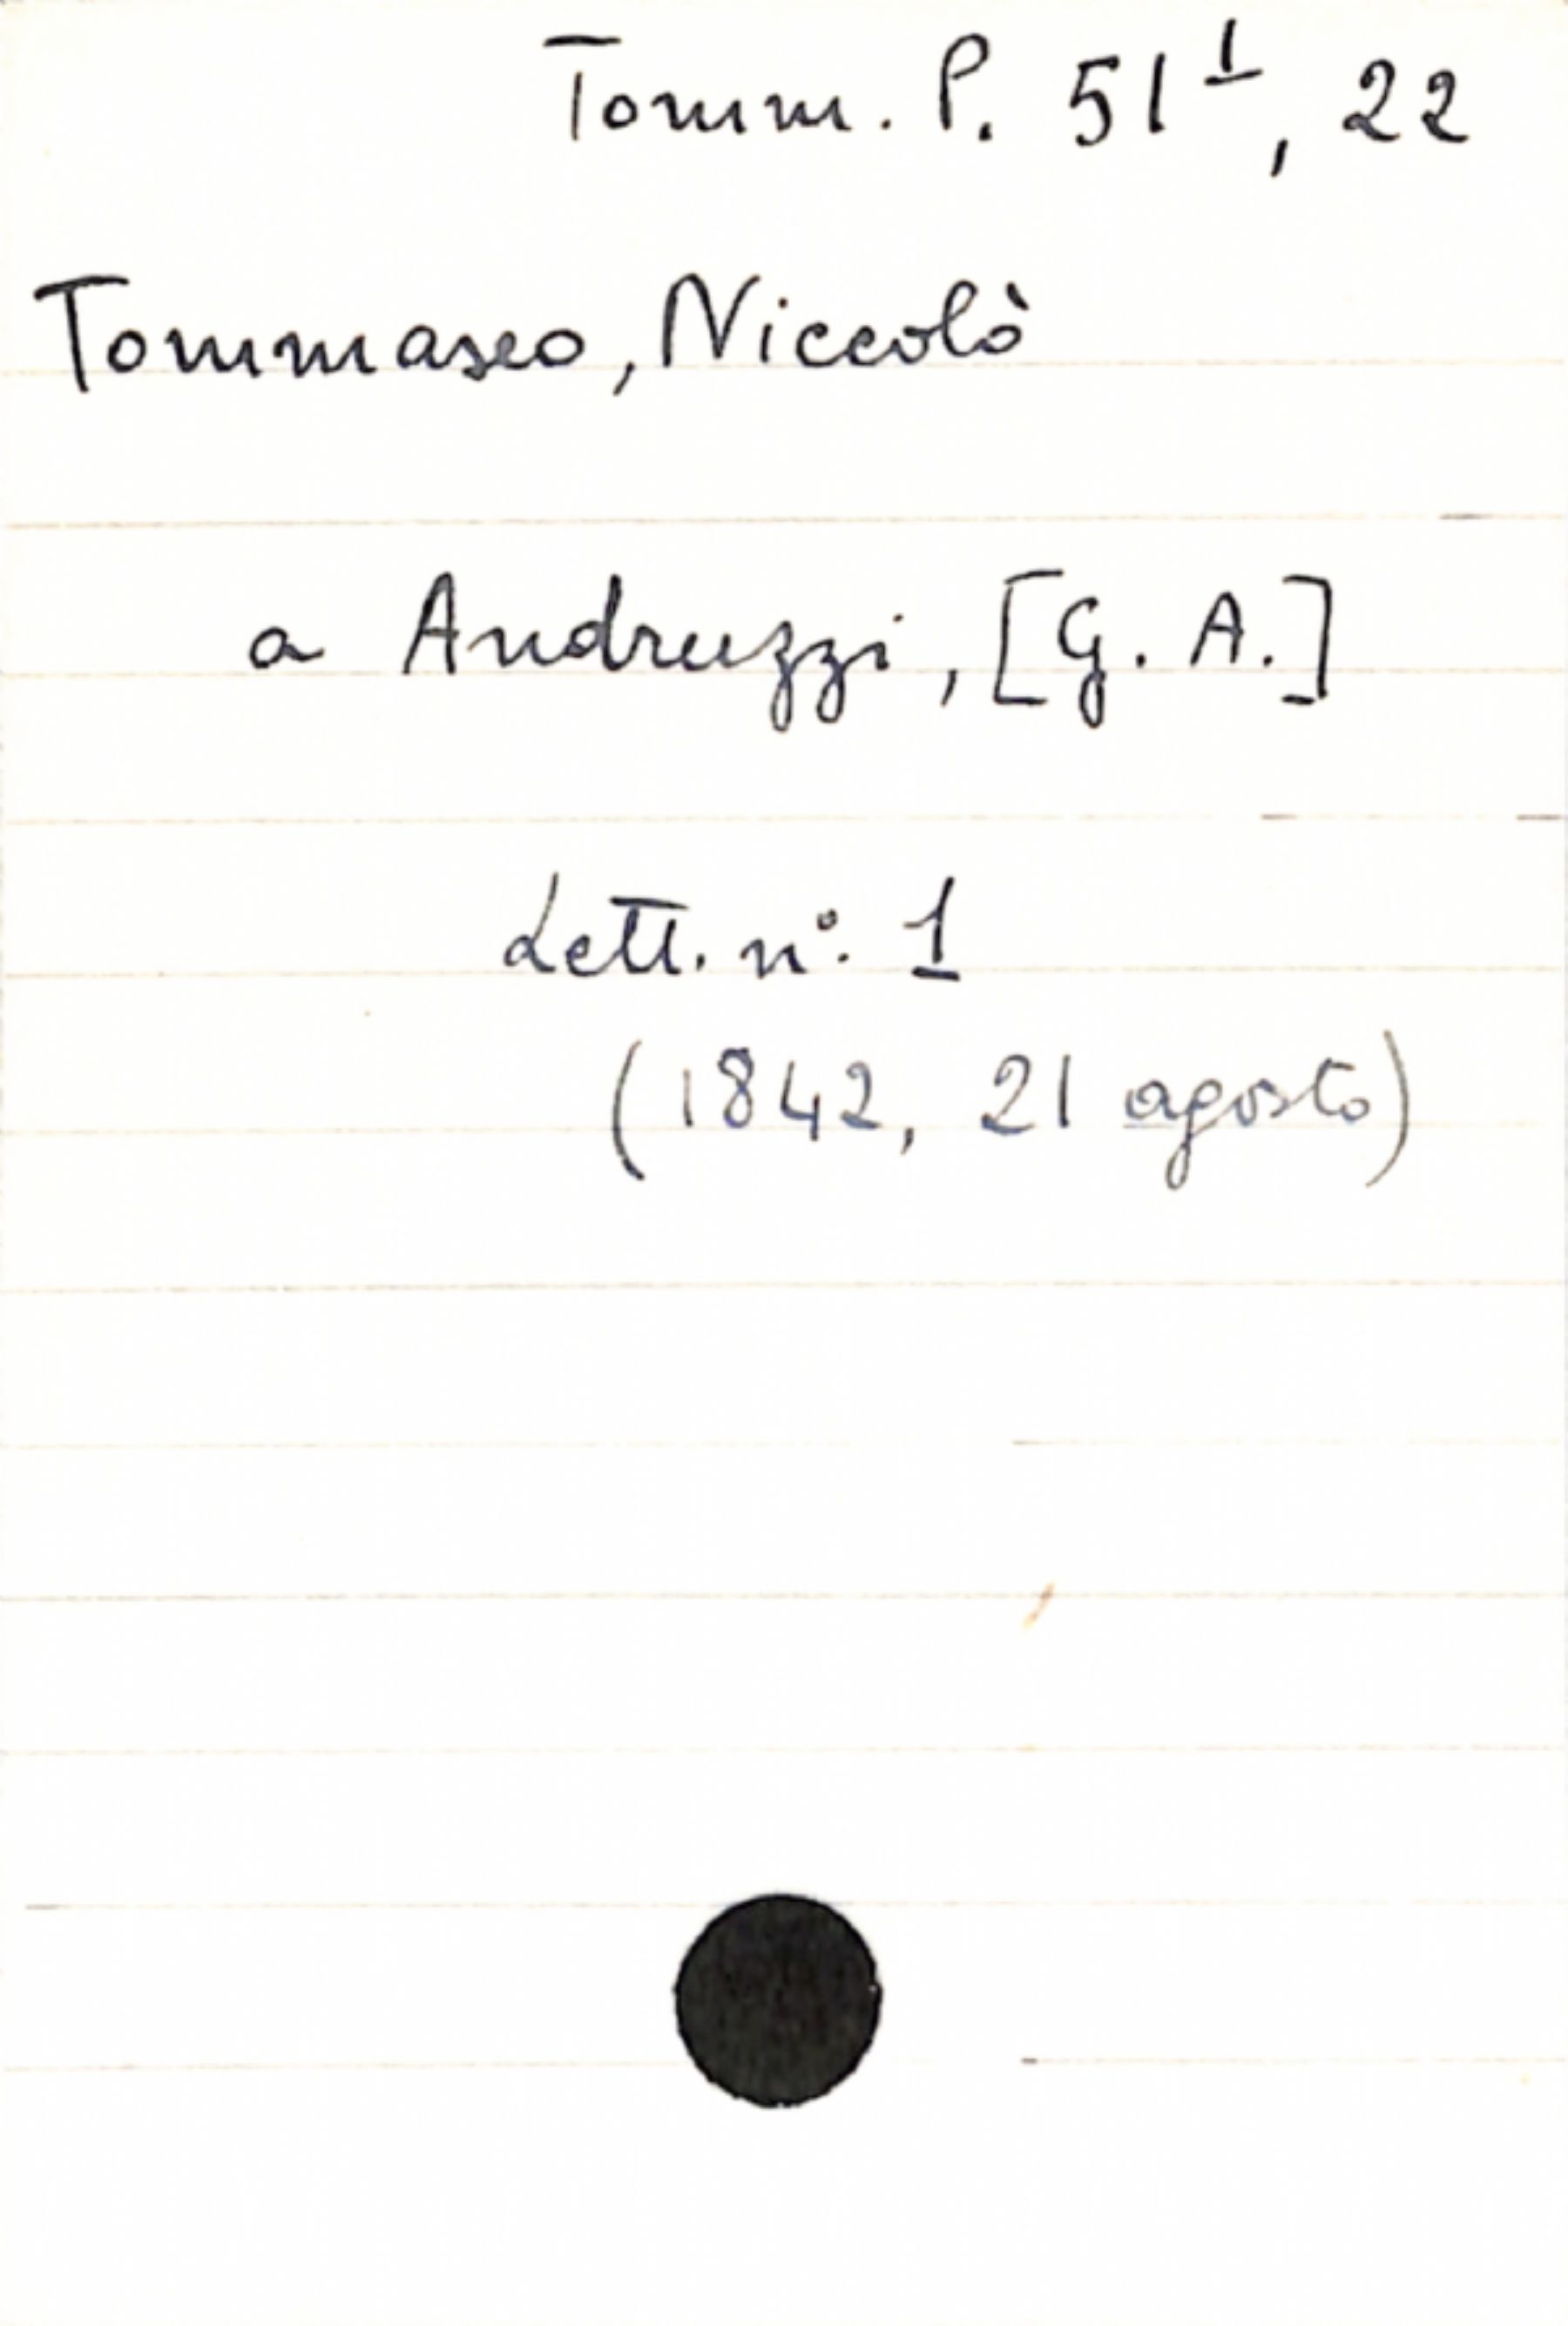 Tomm. P. 51¹, 22
Tommaseo, Niccolò
a Andruzzi, [G. A.]
Lett. n°. 1
(1842, 21 agosto)